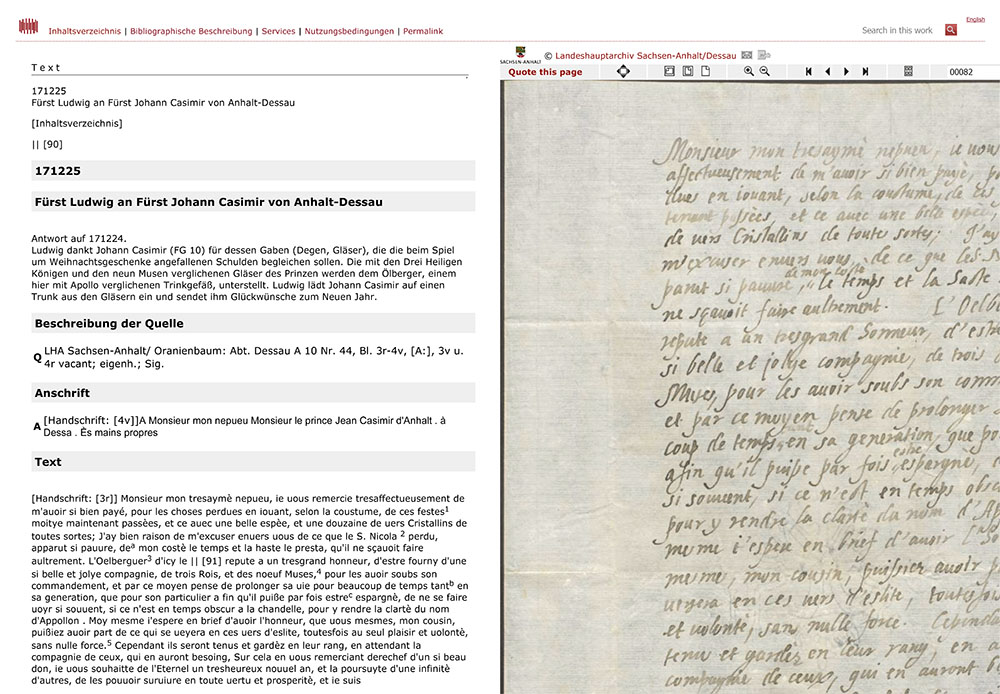 English
Inhaltsverzeichnis | Bibliographische Beschreibung | Services | Nutzungsbedingungen | Permalink
Search in this work
Text
171225
Fürst Ludwig an Fürst Johann Casimir von Anhalt-Dessau
[Inhaltsverzeichnis]
|| [90]
171225
Fürst Ludwig an Fürst Johann Casimir von Anhalt-Dessau
Antwort auf 171224.
Ludwig dankt Johann Casimir (FG 10) für dessen Gaben (Degen, Gläser), die die beim Spiel
um Weihnachtsgeschenke angefallenen Schulden begleichen sollen. Die mit den Drei Heiligen
Königen und den neun Musen verglichenen Gläser des Prinzen werden dem Ölberger, einem
hier mit Apollo verglichenen Trinkgefäß, unterstellt. Ludwig lädt Johann Casimir auf einen
Trunk aus den Gläsern ein und sendet ihm Glückwünsche zum Neuen Jahr.
Beschreibung der Quelle
Q LHA Sachsen-Anhalt/ Oranienbaum: Abt. Dessau A 10 Nr. 44, Bl. 3r-4v, [A:], 3v u.
4r vacant; eigenh.; Sig.
Anschrift
A [Handschrift: [4v]]A Monsieur mon nepueu Monsieur le prince Jean Casimir d'Anhalt . à
Dessa . Ès mains propres
Text
[Handschrift: [3r]] Monsieur mon tresaymè nepueu, ie uous remercie tresaffectueusement de
m'auoir si bien payé, pour les choses perdues en iouant, selon la coustume, de ces festes1
moitye maintenant passèes, et ce auec une belle espèe, et une douzaine de uers Cristallins de
toutes sortes; J'ay bien raison de m'excuser enuers uous de ce que le S. Nicola 2 perdu,
apparut si pauure, dea mon costè le temps et la haste le presta, qu'il ne sçauoit faire
aultrement. L'Oelberguer3 d'icy le || [91] repute a un tresgrand honneur, d'estre fourny d'une
si belle et jolye compagnie, de trois Rois, et des noeuf Muses,4 pour les auoir soubs son
commandement, et par ce moyen pense de prolonger sa uie pour beaucoup de temps tantb en
sa generation, que pour son particulier a fin qu'il puiße par fois estrec espargnè, de ne se faire
uoyr si souuent, si ce n'est en temps obscur a la chandelle, pour y rendre la clartè du nom
d'Appollon . Moy mesme i'espere en brief d'auoir l'honneur, que uous mesmes, mon cousin,
puißiez auoir part de ce qui se ueyera en ces uers d'eslite, toutesfois au seul plaisir et uolontè,
sans nulle force.5 Cependant ils seront tenus et gardèz en leur rang, en attendant la
compagnie de ceux, qui en auront besoing, Sur cela en uous remerciant derechef d'un si beau
don, ie uous souhaitte de l'Eternel un tresheureux nouuel an, et la poursuyte d'une infinitè
d'autres, de les pouuoir suruiure en toute uertu et prosperitè, et ie suis
SACHSEN-ANHALT
© Landeshauptarchiv Sachsen-Anhalt/Dessau
Quote this page
00082
Monsieur mon tresaymè nepueu, ie uous
affectueusement de m'auoir si bien payè, po
dues en iouant, selon la coustume, de ces
tenant passèes, et ce auec une belle espèe,
de uers Cristallins de toutes sortes; J'ay
m'excuser enuers uous, de ce que le S.
de mon costè
parut si pauure, le temps et la haste
ne sçauoit faire aultrement. L'Oelb
repute a un tresgrand honneur, d'est
si belle et jolye compagnie, de trois
Muses, pour les auoir soubs son comm
et par ce moyen pense de prolonger
coup de temps tant en sa generation, que po
estre
afin qu'il puiße par fois espargnè,
si souuent, si ce n'est en temps obsc
pour y rendre la clartè du nom d'Ap
mesme i'espere en brief d'auoir l'ho
mesme, mon cousin, puissiez auoir p
ueyera en ces uers d'eslite, toutesfois
et uolontè, sans nulle force. Cependa
tenu et gardèz en leur rang, en a
compagnie de ceux, qui en auront b